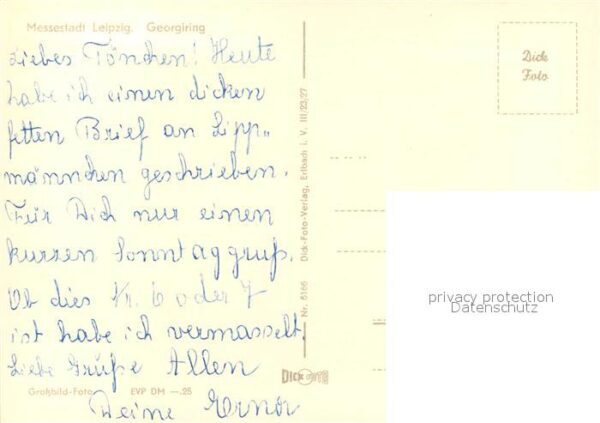 Messestadt Leipzig. Georgiring
Liebes Tönchen! Heute
habe ich einen dicken
fetten Brief an Lipp„
männchen geschrieben.
Für Dich nur einen
kurzen Sonntaggruß.
Ob dies Nr. 6 oder 7
ist habe ich vermasselt.
Liebe Grüße Allen
Deine
Großbild-Foto EVP DM —.25
Nr. 6166 Dick-Foto-Verlag, Erlbach i. V. III/23/27
DICK FOTO
Dick
Foto
privacy protection
Datenschutz